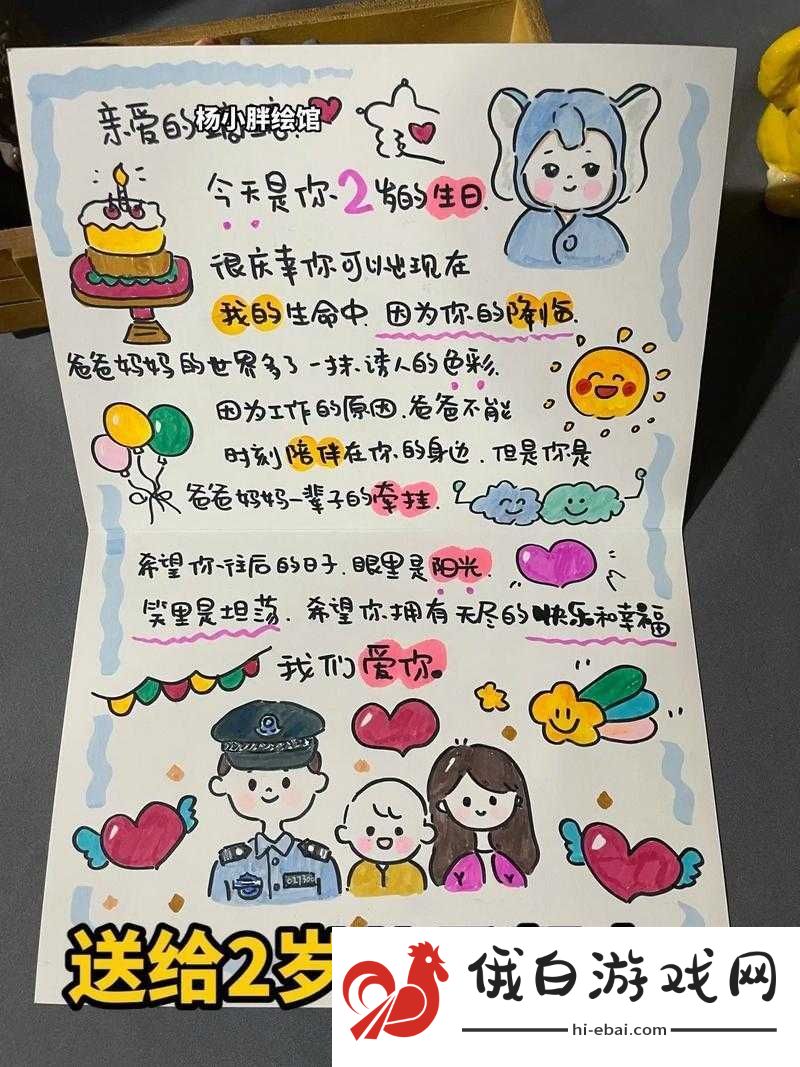 亲爱的
杨小胖绘馆
今天是你2岁的生日.
很庆幸你可以出现在
我的生命中.因为你的降临.
爸爸妈妈的世界多了一抹诱人的色彩.
因为工作的原因.爸爸不能
时刻陪伴在你的身边.但是你是
爸爸妈妈一辈子的牵挂.
希望你往后的日子.眼里是阳光.
笑里是坦荡.希望你拥有无尽的快乐和幸福
我们爱你。
送给2岁
俄白游戏网
hi-ebai.com